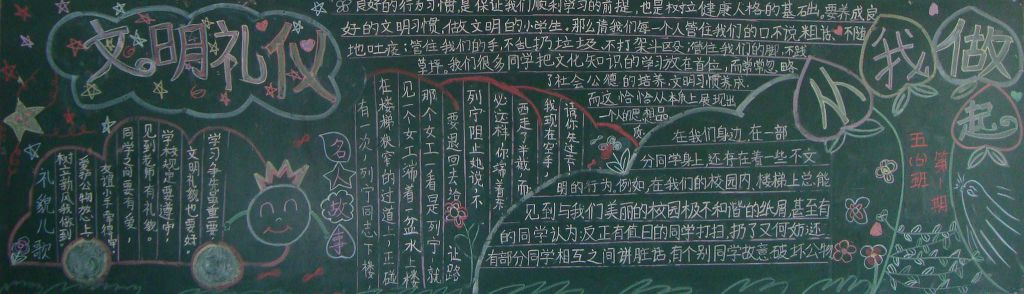 文明礼仪
从我做起
良好的行为习惯是保证我们顺利学习的前提,也是树立健康人格的基础。要养成良
好的文明习惯,做文明的小学生。那么请我们每一个人管住我们的口不说粗话、不随
地吐痰;管住我们的手,不乱扔垃圾、不打架斗殴;管住我们的脚,不践
草坪。我们很多同学把文化知识的学习放在首位,而常常忽略
了社会公德的培养,文明习惯养成。
而这恰恰从本质上展现出
一个人的思想品
质。
在我们身边,在一部
分同学身上,还存在着一些不文
明的行为,例如,在我们的校园内,楼梯上总能
见到与我们美丽的校园极不和谐的纸屑,甚至有
的同学认为:反正有值日的同学打扫,扔了又何妨;还
有部分同学相互之间讲脏话,有个别同学故意破坏公物
五(四)班
第1期
名人故事
让路
有一次,列宁同志下楼,
在楼梯狭窄的过道上,正碰
见一个女工端着一盆水上楼
那个女工一看是列宁,就
要退回去给
列宁阻止她说:不
必这样,你端着东
西走了半截,而
我现在空手,
请你先过去
礼貌儿歌
学习争先最重要,
文明礼貌也要好
学校规定要遵守,
见到老师有礼貌。
同学之间要有爱,
友谊小手常
爱护公物放心上,
树立新风我做到